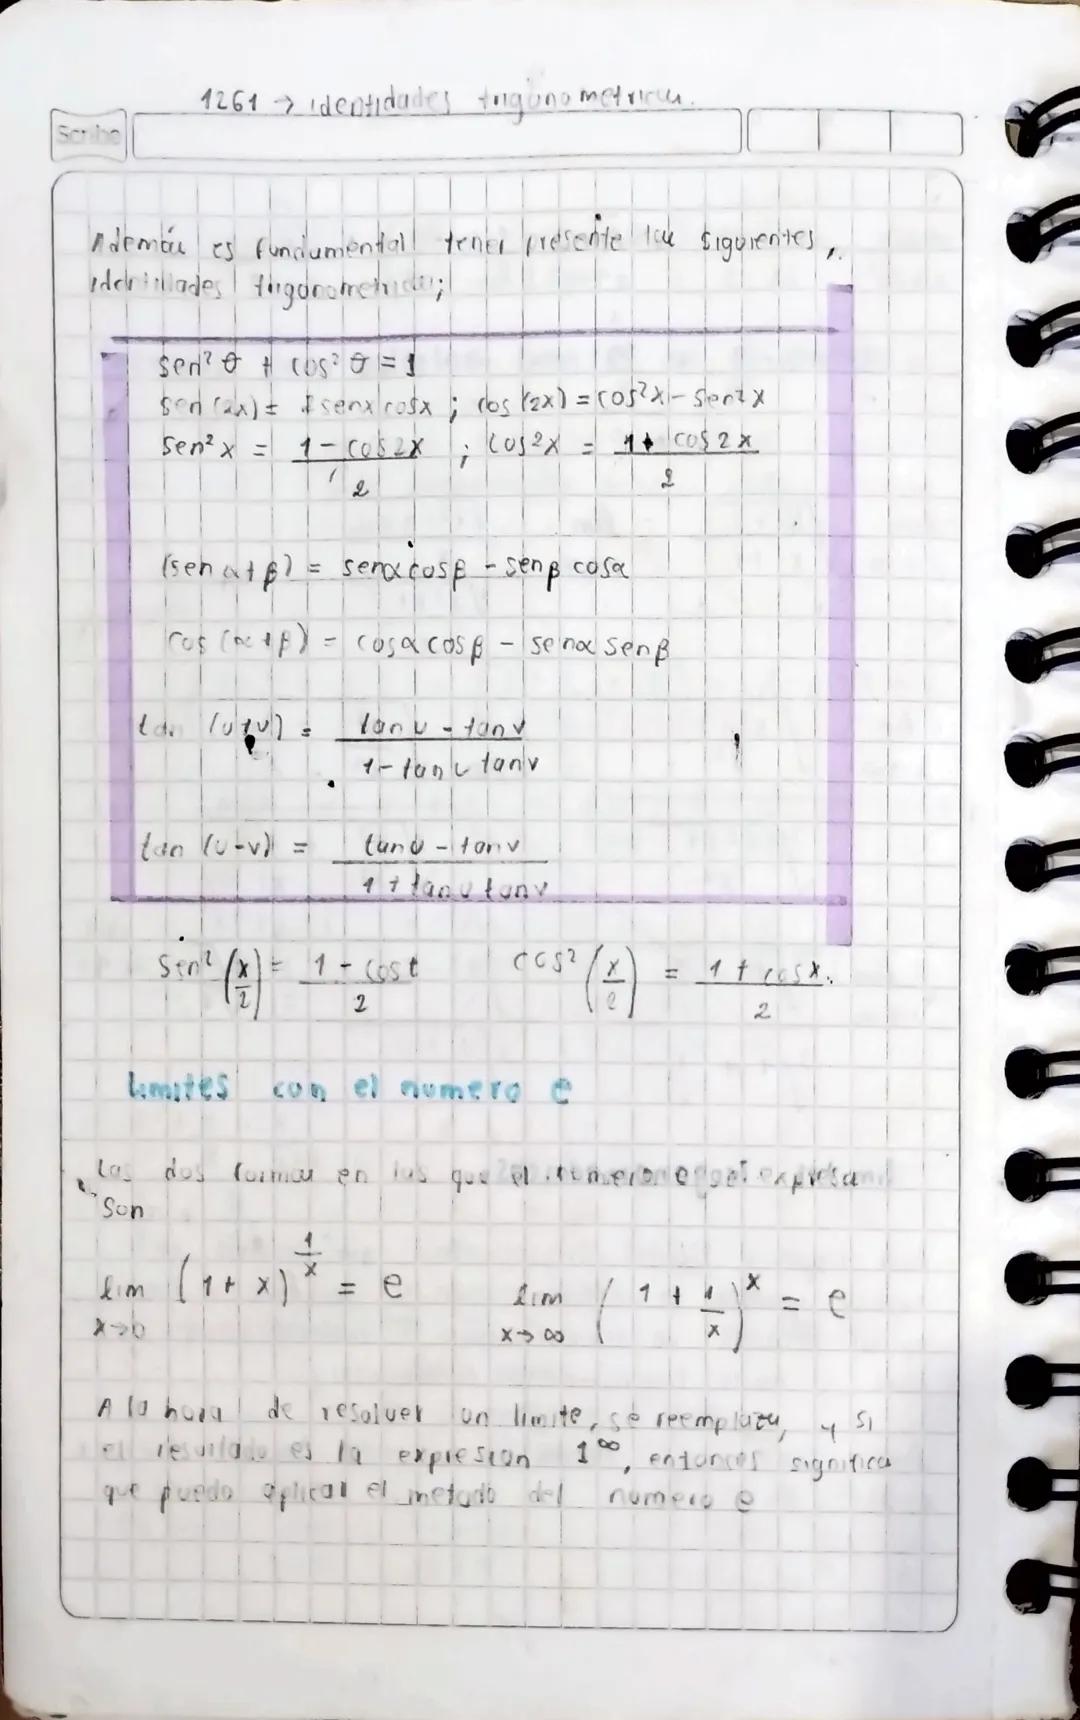 1261 → identidades trigonometricas.
Scribe
Además es fundamental tener presente las siguientes,
identidades trigonometricas;
sen² θ + cos² θ = 1
sen (2x) = 2senx cosx ; cos (2x) = cos²x - sen²x
sen² x = 1 - cos2x / 2 ; cos2x = 1 + cos 2x / 2
(sen α + β) = senα cosβ - senβ cosα
cos (α + β) = cosα cosβ - senα senβ
tan (u+v) = tan u - tan v / 1 - tan u tan v
tan (u-v) = tan u - tan v / 1 + tan u tan v
Sen² (x/2) = 1 - cos t / 2 cos² (x/2) = 1 + cos x. / 2
Limites con el numero e
Las dos formas en las que el numero e expresan
Son
lim x→0 (1 + x)^(1/x) = e lim x→∞ (1 + 1/x)^x = e
A la hora de resolver un limite, se reemplaza, y si
el resultado es la expresion 1^∞, entonces significa
que puedo aplicar el metodo del numero e